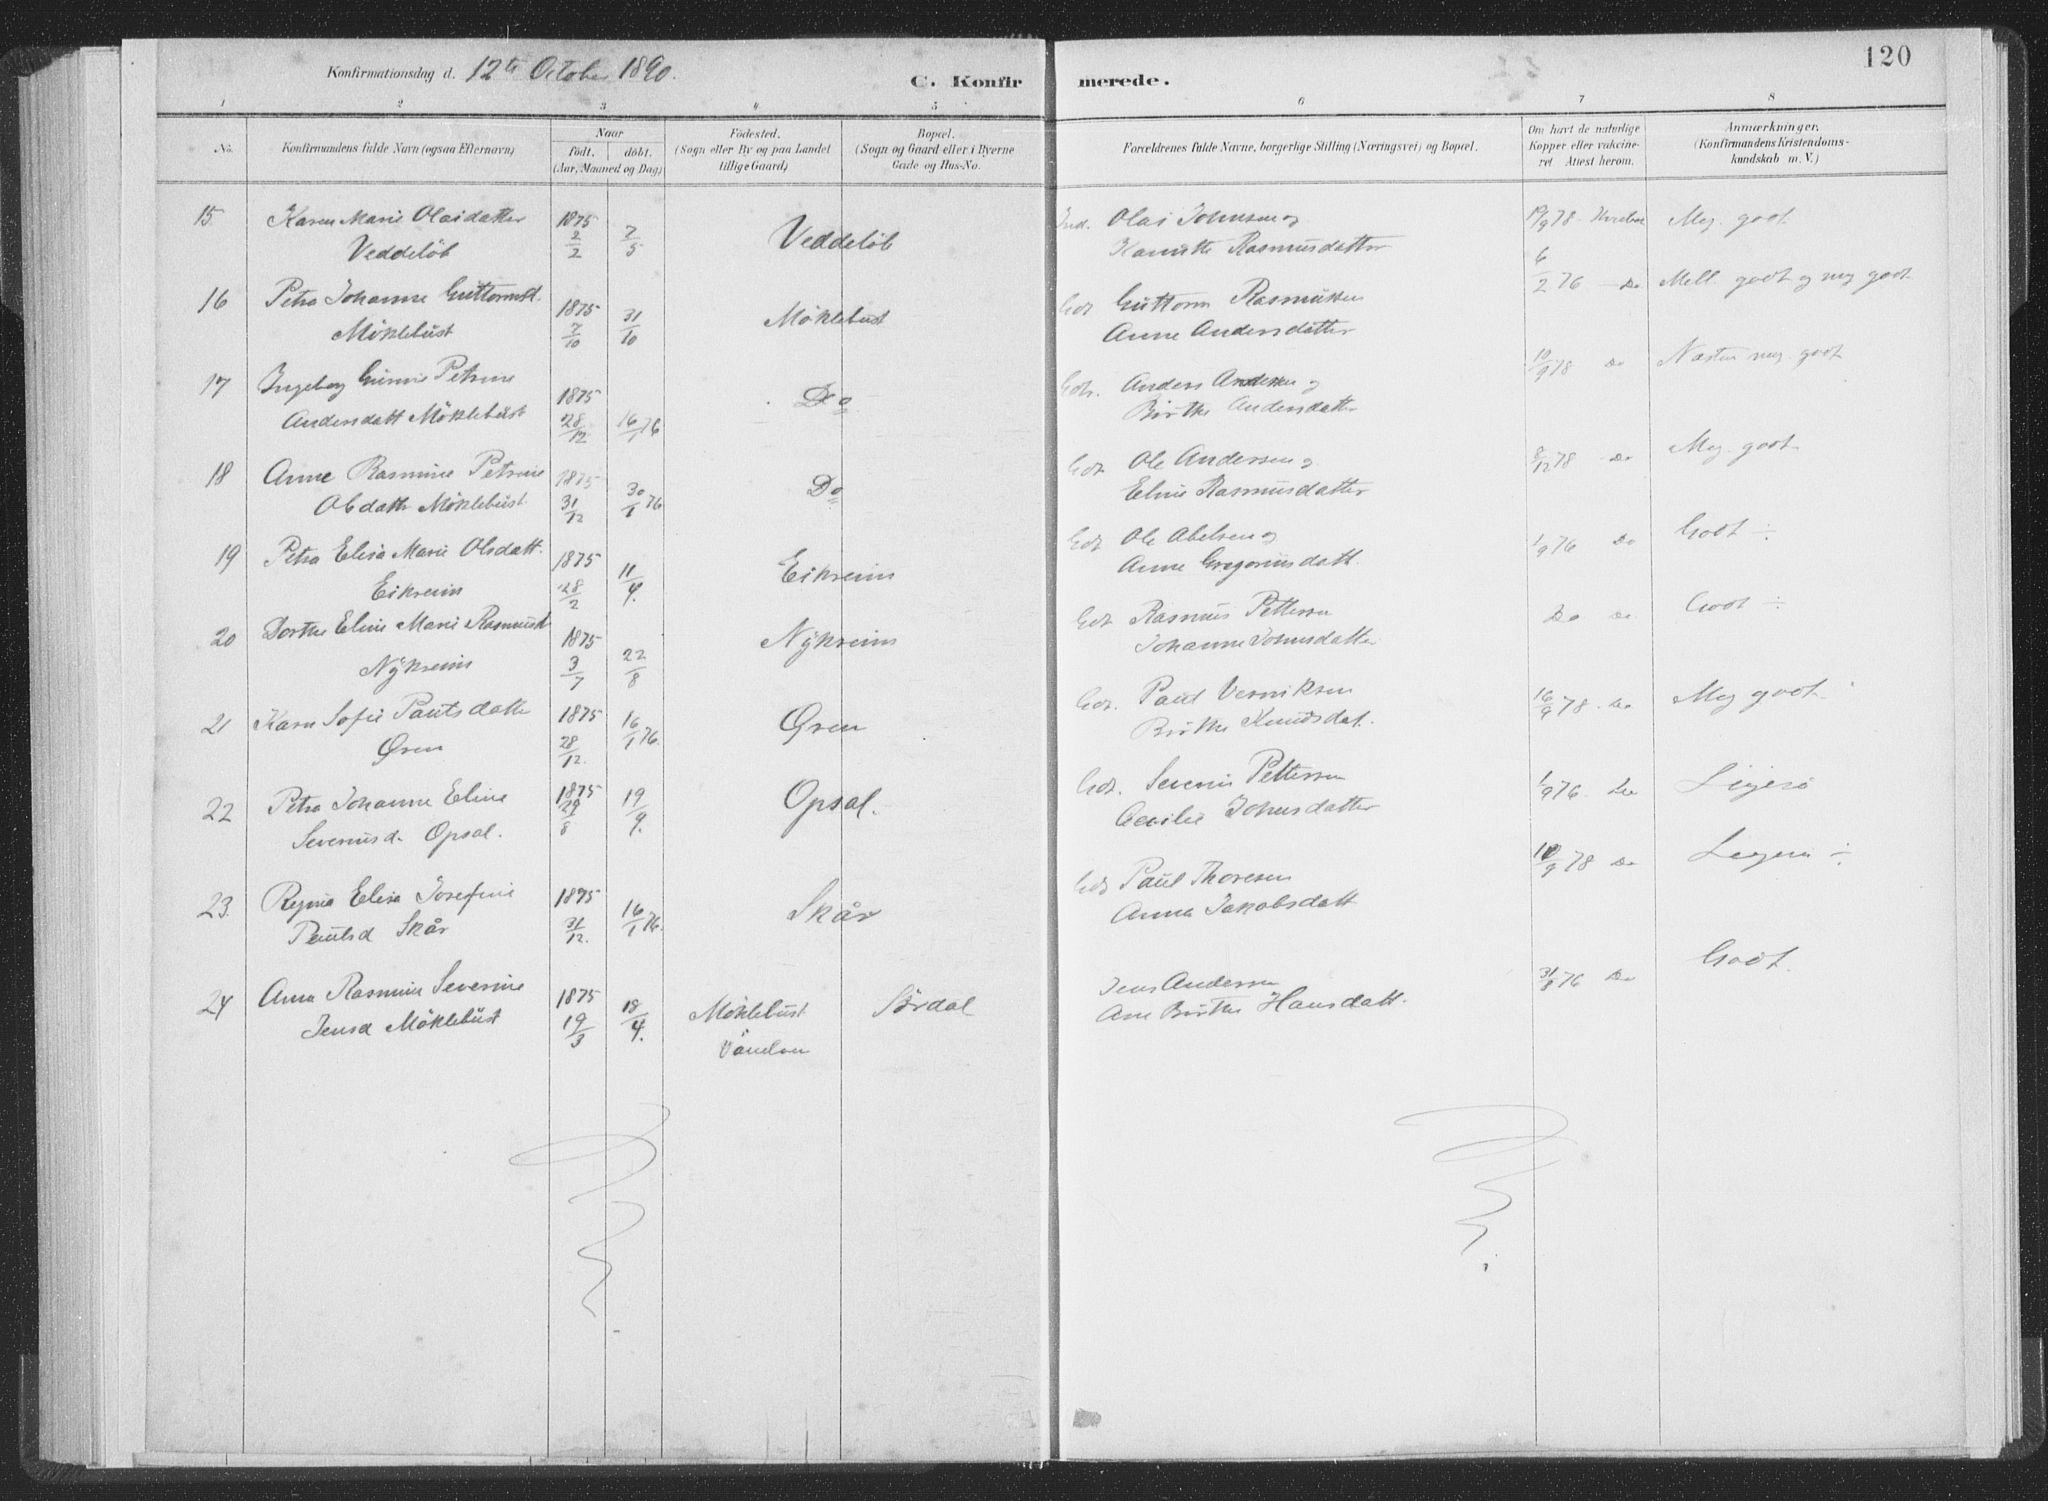 120
Konfirmationsdag d. 12te October 1890.
C. Konfirmerede.
1 2 3 4 5 6 7 8
No.
Konfirmandens fulde Navn (ogsaa Efternavn)
Naar
födt. döbt.
(Aar, Maaned og Dag)
Födested.
(Sogn eller By og paa Landet
tillige Gaard)
Bopæl.
(Sogn og Gaard eller i Byerne
Gade og Hus-No.
Forældrenes fulde Navne, borgerlige Stilling (Næringsvei) og Bopæl.
Om havt de naturlige
Kopper eller vakcine-
ret Attest herom.
Anmærkninger.
(Konfirmandens Kristendoms-
kundskab m. V.)
15 Karen Marie Olaidatter 1875 2/2 7/5 Veddelöb Ind. Olai Johnsen og 19/9 78 Meg. godt
Veddelöb Rasmusdatter
16 Petra Johanne Guttormsd. 1875 7/10 31/10 Möklebust Gdr Guttorm Rasmussen 6/2 76 Do Mell. godt og meg godt
Möklebust Anne Andersdatter
17 Ingeborg Gunnie Petrine 1875 28/12 16/1 76 Do Gdr. Anders Andersen og 10/9 78 Do Næsten meg. godt
Andersdatt Möklebust Birthe Andersdatter
18 Anne Rasmine Petrine 1875 31/12 30/1 76 Do Gdr Ole Andersen og 8/12 78 Do Meg. godt
Olsdatt Möklebust Eline Rasmusdatter
19 Petra Elisa Marie Olsdatt. 1875 28/2 11/4. Eikreim Gdr Ole Abelsen og 1/9 76 Do Godt ÷
Eikreim Anne Gregoriusdatt.
20 Dorthe Eline Marie Rasmusd 1875 3/7 22/8 Nÿkreim Gdr Rasmus Pettersen Do Do Godt ÷
Nÿkreim Johanne Johnsdatter
21 Karn Sofie Paulsdatter 1875 28/12. 16/1 76. Øren Gdr. Paul Verniksen 16/9 78. Do Meg godt
Øren Birthe Knudsdat.
22 Petra Johanne Eline 1875 29/8 19/9. Opsal. Gdr. Severin Pettersen 1/9 76. Do
Severinsd. Opsal. Cecilie Johnsdatter
23. Regina Elisa Josefine 1875 31/12. 16/1 76. Skår Gdr Paul Thoresen 10/9 78 Do
Paulsd Skår Anna Jakobsdatt
24 Anna Rasmine Severine 1875 19/3 18/4. Möklebust Sørdal Jens Andersen 31/8 76 Do Godt.
Jensd Möklebust Ane Birthe Hansdatt.